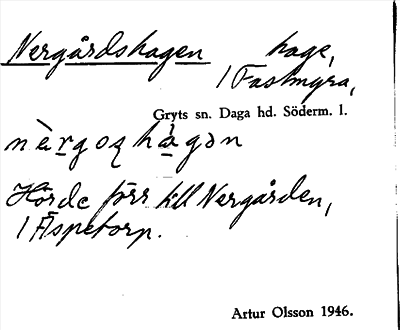 Nergårdshagen hage,
/ Fastmyra,
Gryts sn. Daga hd. Söderm. l.
Hörde förr till Nergården,
/ Äspetorp.
Artur Olsson 1946.